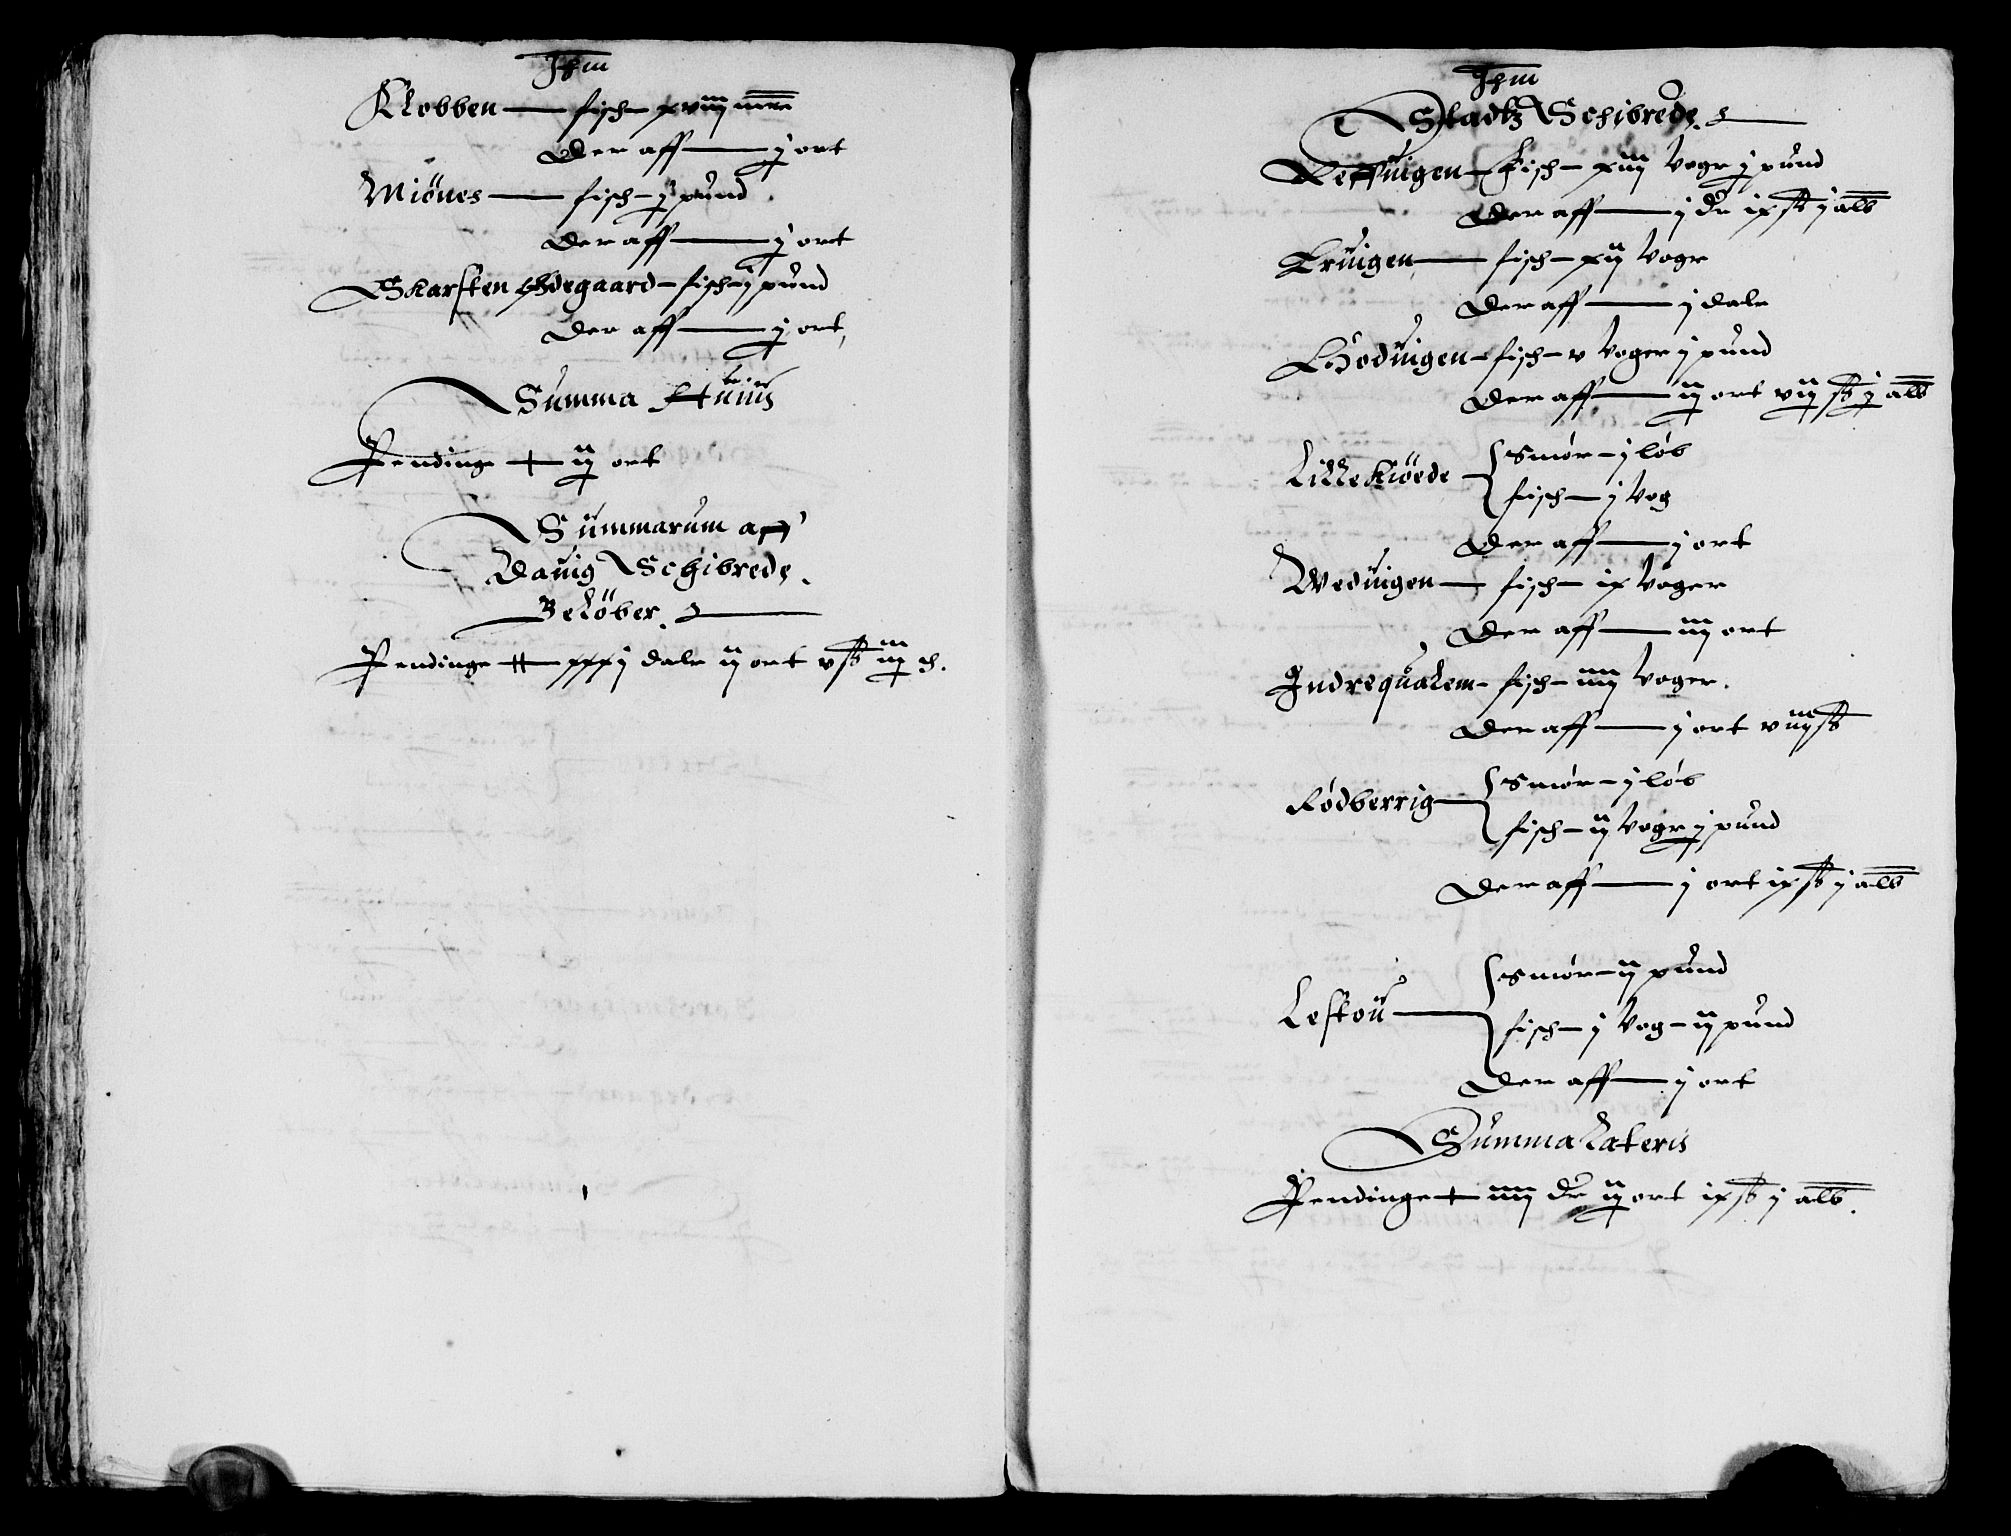 Jhm
Klobben — fisch – xviij mrc
Der aff — ½ ort
Miönes — fisch – ½ pund
Der aff — ½ ort
Skarsten Ødegaard – fisch – ½ pund
Der aff — ½ ort
Summa Huius
Pendinge + ij½ ort
Summarum aff
Dauig Schibrede
Belöber
Pendinge ++ xxxj dalr ij ort v sk iij½ ch.
Jhm
Stadtz Schibrede
Reffuigen – Fisch – xiij Vogr ½ pund
Der aff — j dr ix sk j alb
Eruigen — fisch – xij Vogr
Der aff — j dalr
Hoduigen – fisch – v Voger j pund
Der aff — ij½ ort vij½ sk ½ alb
Lille Kiöede
Smør – j løb
fisch – j Vog
Der aff — j ort
Weduigen — fisch – ix Voger
Der aff — iij ort
Indrequalem – fisch – iiij Voger
Der aff — j ort viij sk
Rødberrig
Smør – j løb
fisch – ij Vogr j pund
Der aff — j ort ix sk j alb
Leſtou
Smør – ij pund
fisch – j Vog – ij pund
Der aff — j ort
Summa Lateris
Pendinge + iiij dr ij½ ort ix sk j alb.